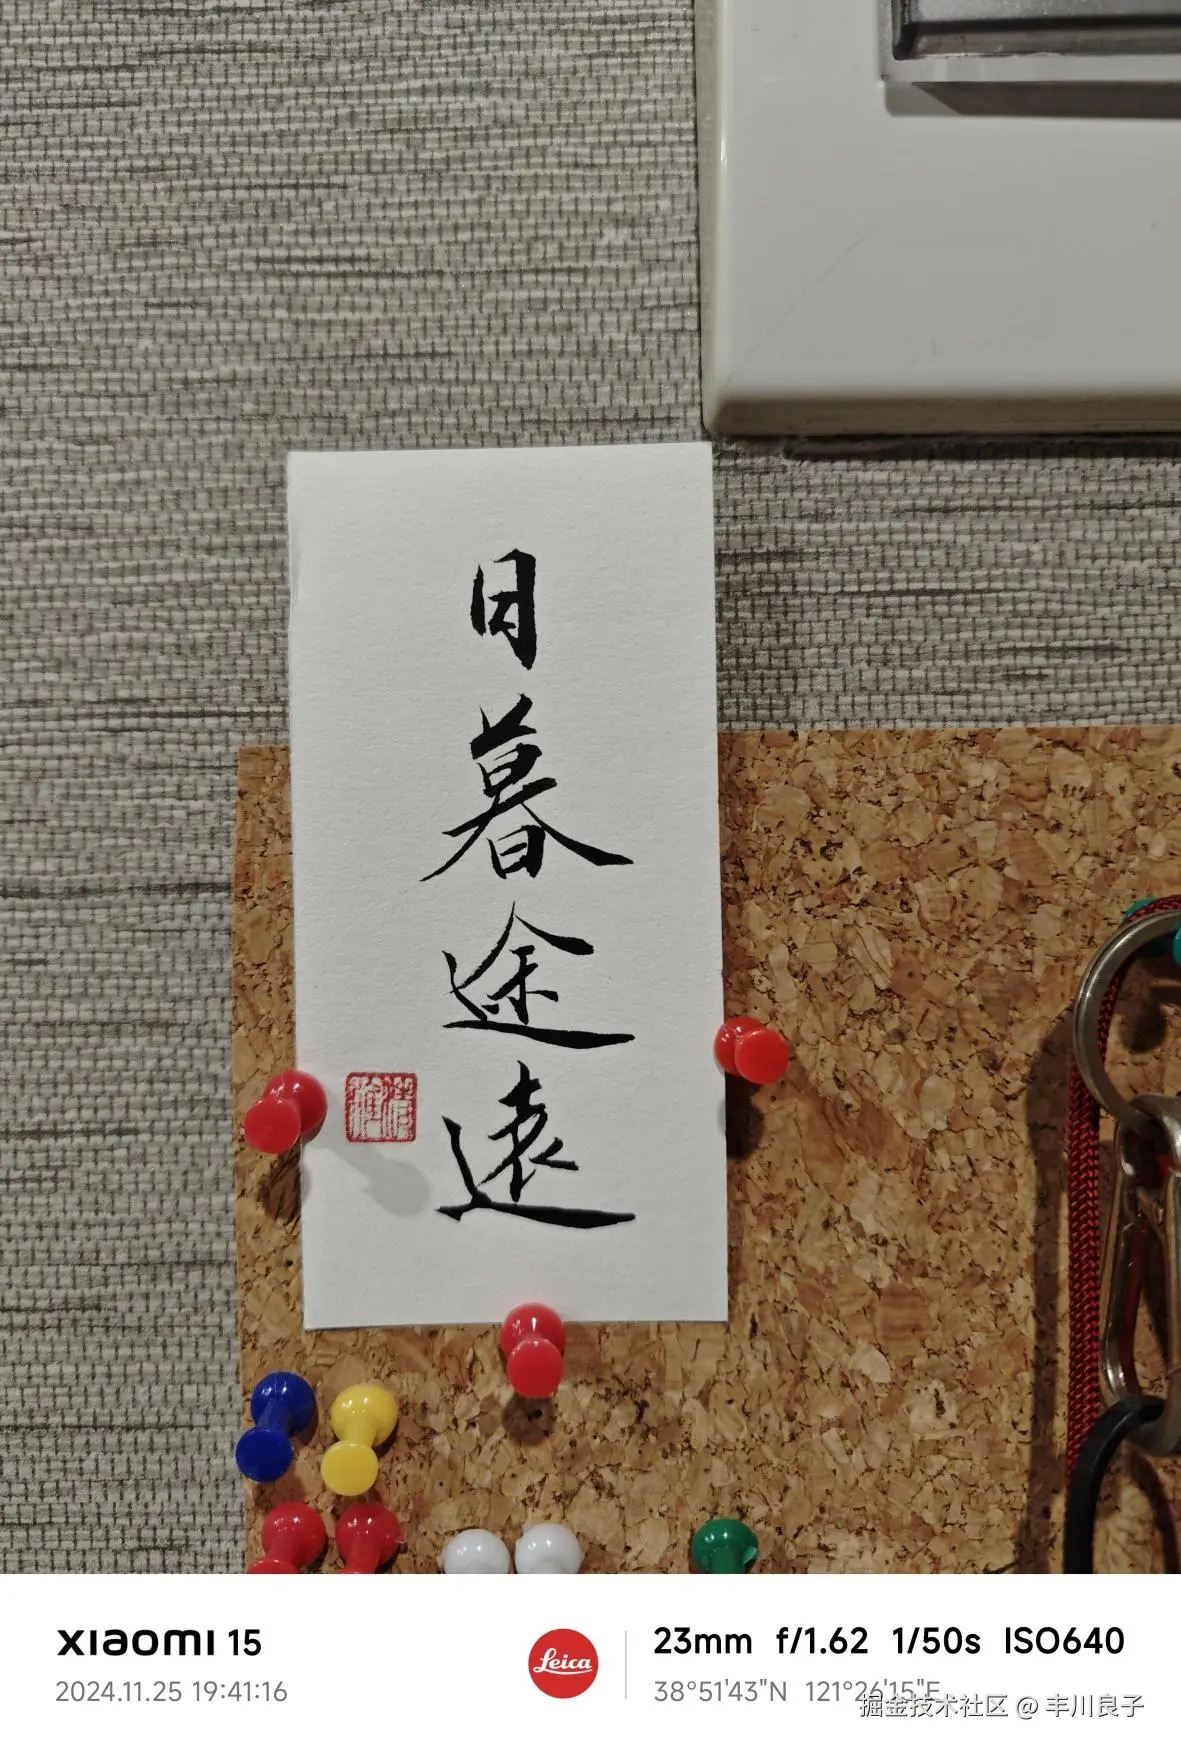 日暮途遠
xiaomi 15
2024.11.25 19:41:16
Leica
23mm f/1.62 1/50s ISO640
38°51'43"N 121°26'15"E
掘金技术社区 @ 丰川良子